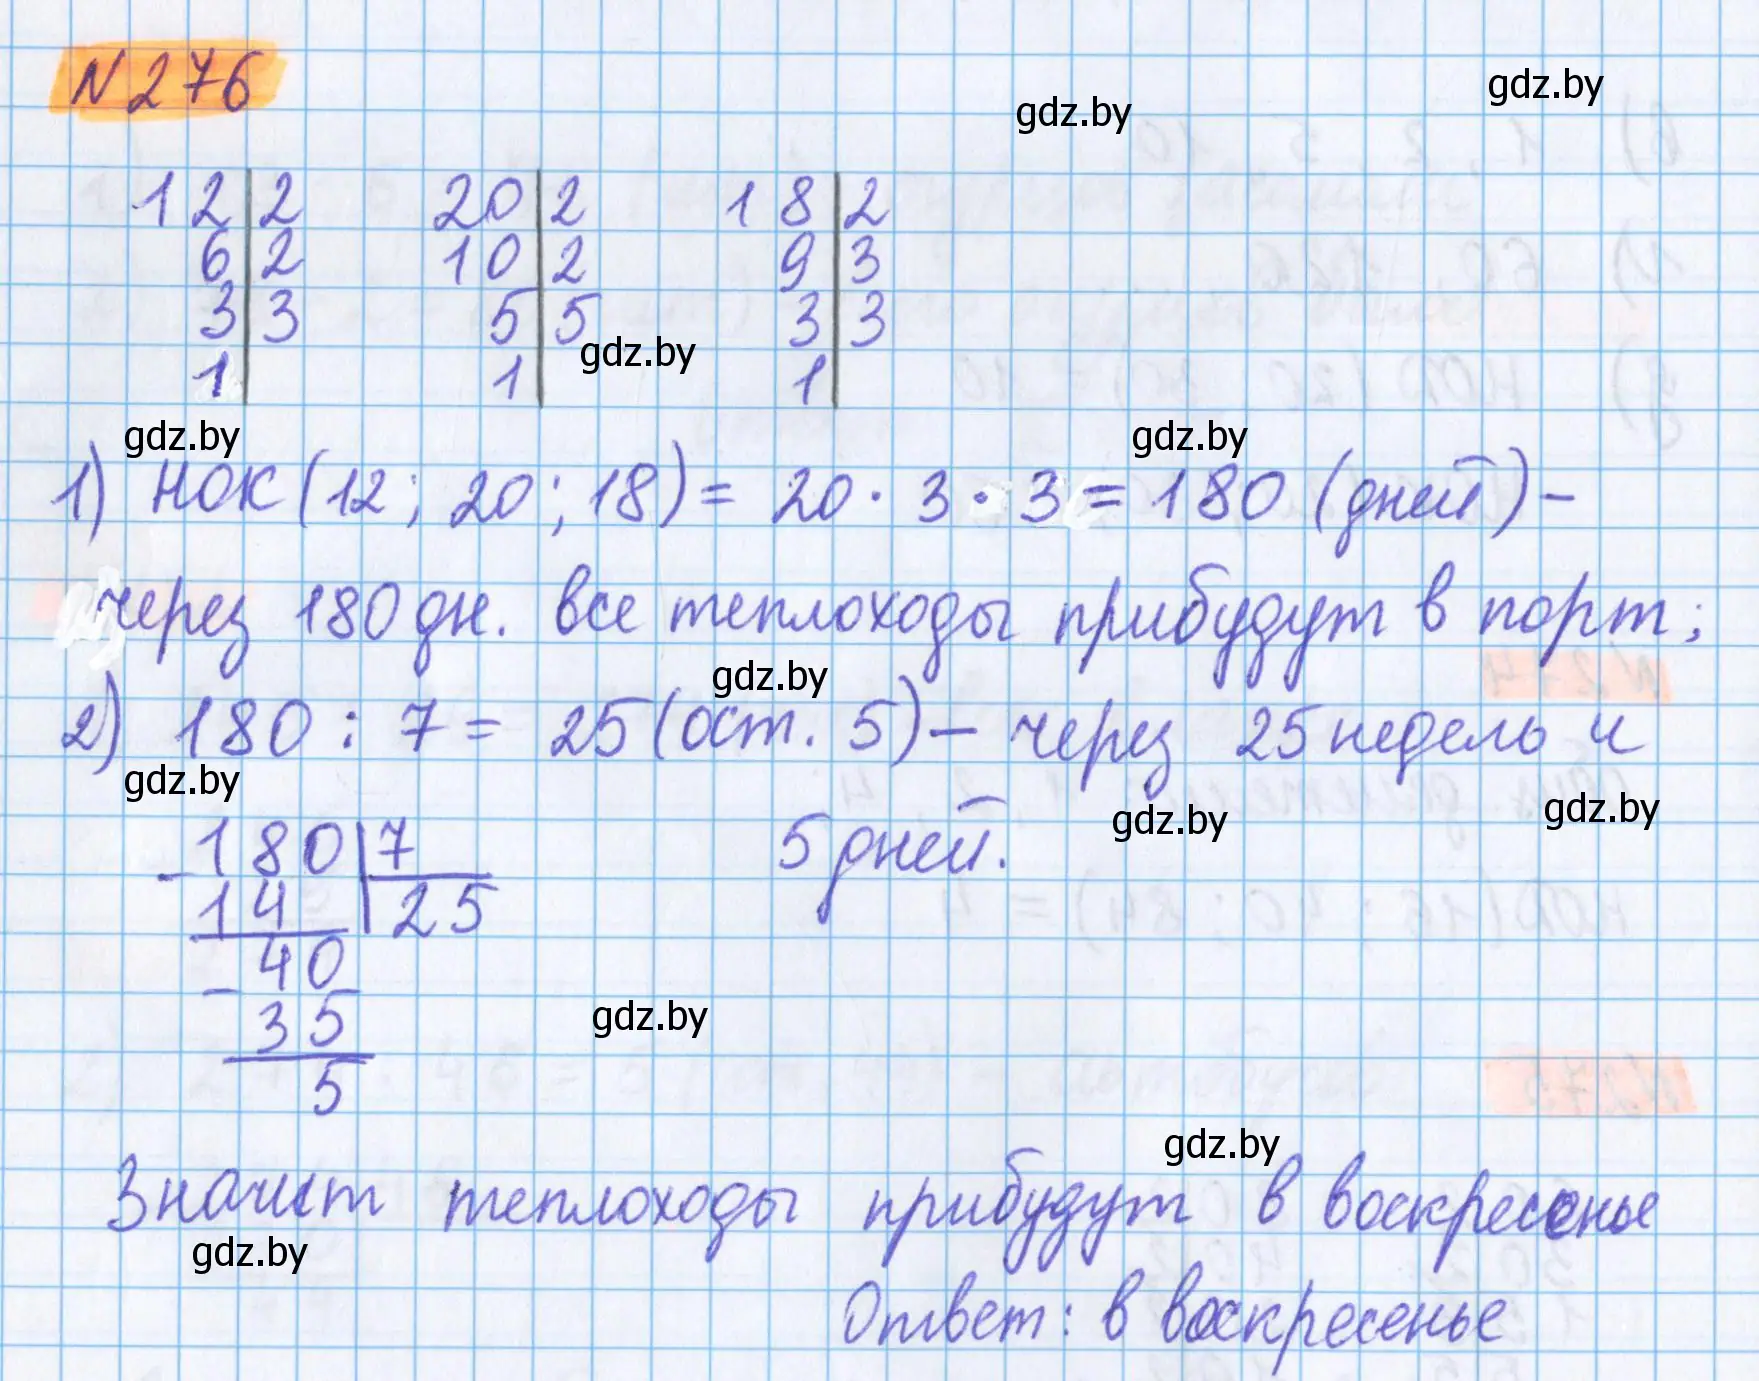 N276
gdz.by
gdz.by
12|2 20|2 18|2
6|2 10|2 9|3
3|3 5|5 3|3
1| 1| 1|
gdz.by
gdz.by
gdz.by
1) НОК(12; 20; 18) = 20 · 3 · 3 = 180 (дней) –
через 180 дн. все теплоходы прибудут в порт;
gdz.by
2) 180 : 7 = 25 (ост. 5) – через 25 недель и
5 дней.
gdz.by
gdz.by
gdz.by
- 180|7
14 |25
- 40
35
5
gdz.by
gdz.by
Значит теплоходы прибудут в воскресенье
gdz.by
Ответ: в воскресенье